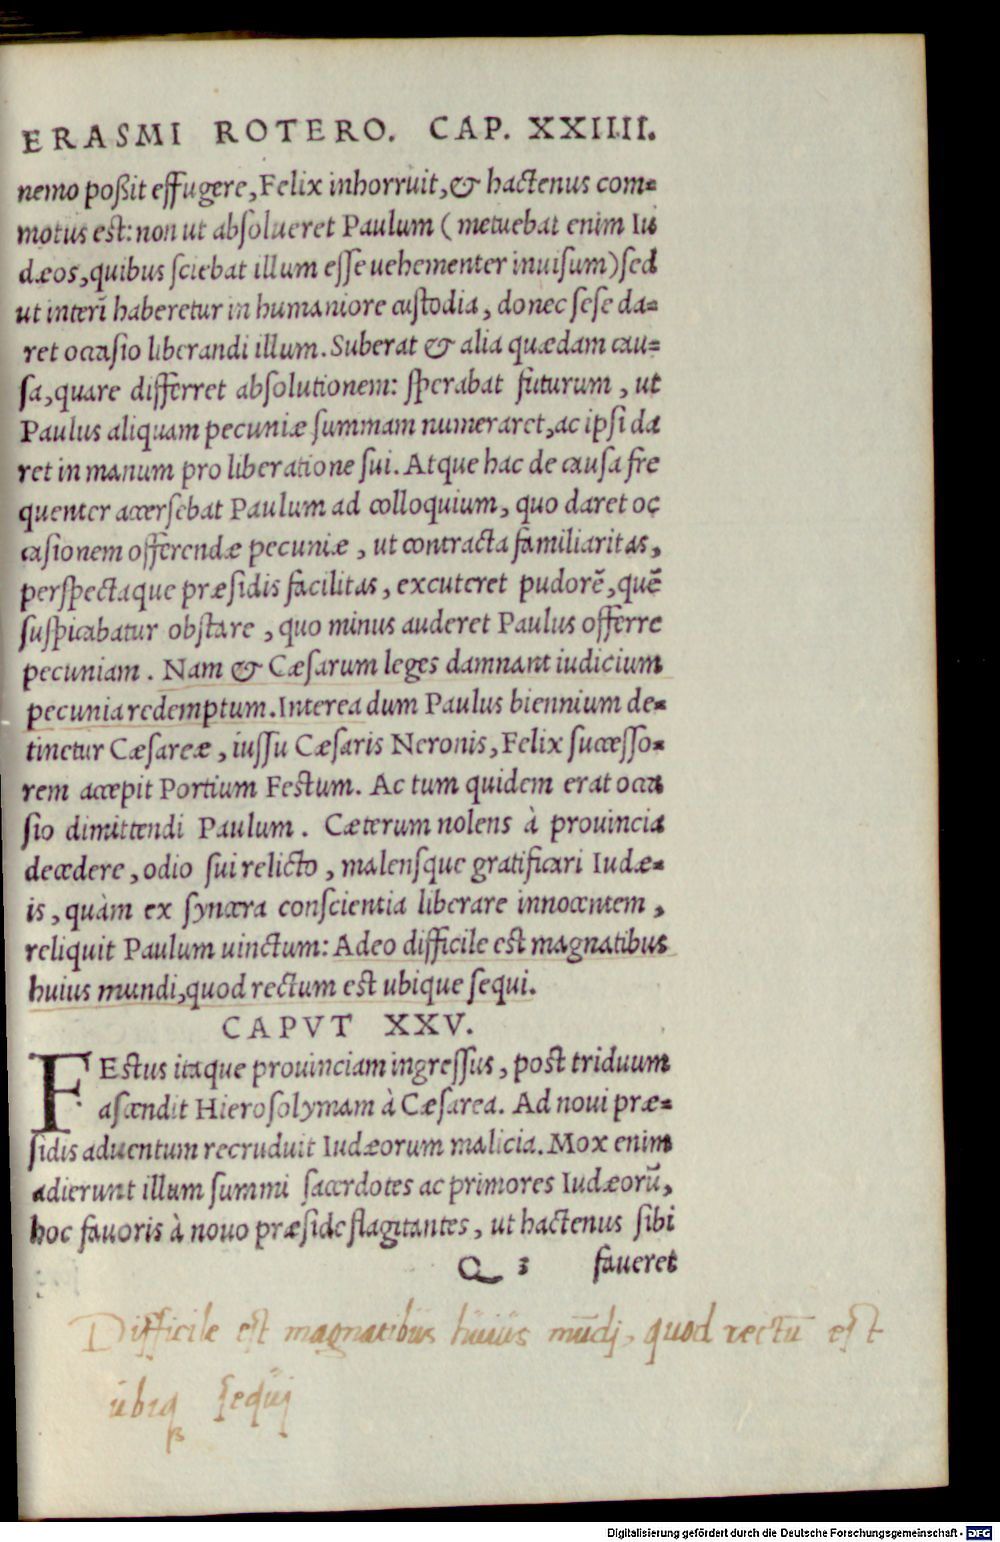 ERASMI ROTERO. CAP. XXIIII.
nemo poßit effugere, Felix inhorruit, & hactenus com=
motus est: non ut absolueret Paulum ( metuebat enim Iu
dæos, quibus sciebat illum esse uehementer inuisum) sed
ut interī haberetur in humaniore custodia, donec sese da=
ret occasio liberandi illum. Suberat & alia quædam cau=
sa, quare differret absolutionem: sperabat futurum, ut
Paulus aliquam pecuniæ summam numeraret, ac ipsi da
ret in manum pro liberatione sui. Atque hac de causa fre
quenter accersebat Paulum ad colloquium, quo daret oc
casionem offerendæ pecuniæ, ut contracta familiaritas,
perspectaque præsidis facilitas, excuteret pudorē, quē
suspicabatur obstare, quo minus auderet Paulus offerre
pecuniam. Nam & Cæsarum leges damnant iudicium
pecunia redemptum. Interea dum Paulus biennium de=
tinetur Cæsareæ, iussu Cæsaris Neronis, Felix successo=
rem accepit Portium Festum. Ac tum quidem erat occa
sio dimittendi Paulum. Cæterum nolens à prouincia
decedere, odio sui relicto, malensque gratificari Iudæ=
is, quàm ex syncera conscientia liberare innocentem,
reliquit Paulum uinctum: Adeo difficile est magnatibus
huius mundi, quod rectum est ubique sequi.
CAPVT XXV.
FEstus itaque prouinciam ingressus, post triduum
ascendit Hierosolymam à Cæsarea. Ad noui præ=
sidis aduentum recruduit Iudæorum malicia. Mox enim
adierunt illum summi sacerdotes ac primores Iudæorū,
hoc fauoris à nouo præside flagitantes, ut hactenus sibi
Q 3 faueret
Difficile est magnatibus huius mūdj, quod rectū est
ubiq sequj
Digitalisierung gefördert durch die Deutsche Forschungsgemeinschaft - DFG